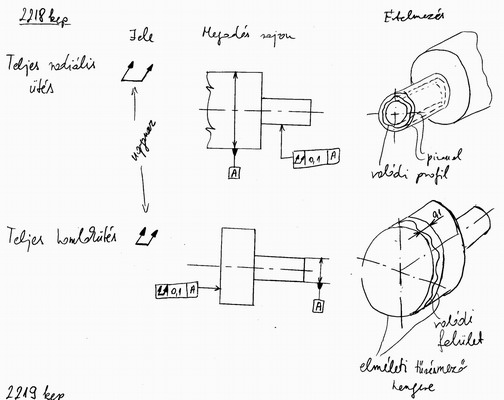 2218 kép
Jele
Megadás rajzon
Értelmezés
Teljes radiális
ütés
ugyanaz
0,1 A
A
piszul
valódi profil
Teljes homlokütés
0,1 A
A
0,1
valódi
felület
elméleti tűrésmező
hengere
2219 kép